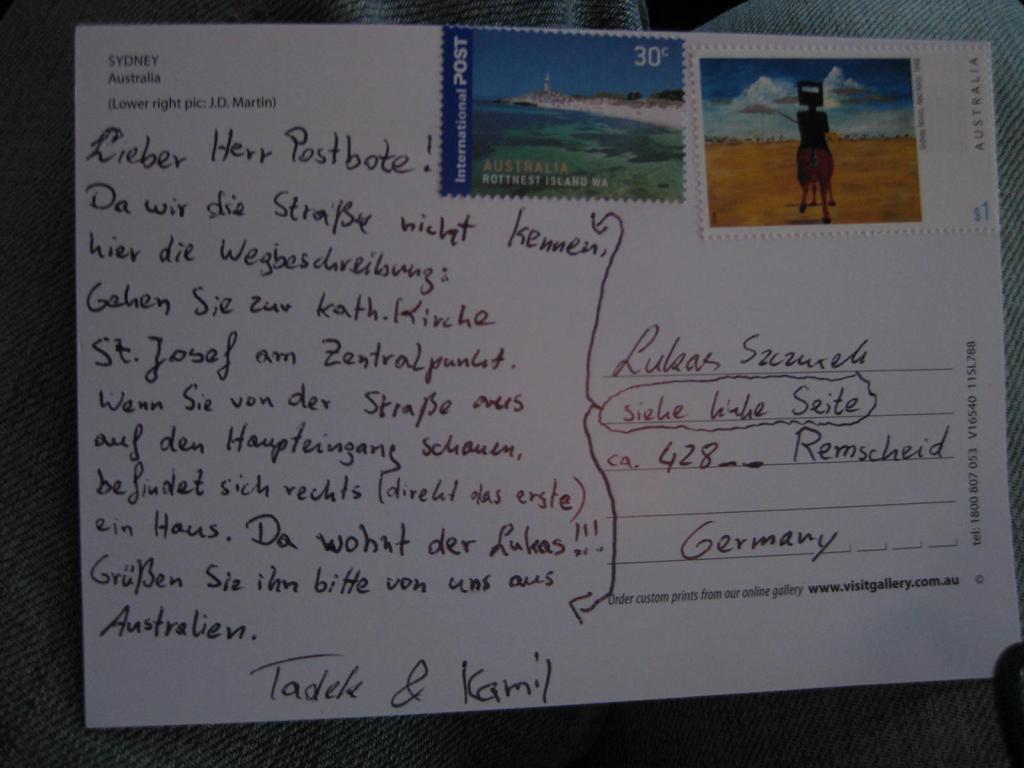 SYDNEY
Australia
(Lower right pic: J.D. Martin)
Lieber Herr Postbote!
Da wir die Straße nicht kennen,
hier die Wegbeschreibung:
Gehen Sie zur kath. Kirche
St. Josef am Zentralpunkt.
Wenn Sie von der Straße aus
auf den Haupteingang schauen,
befindet sich rechts (direkt das erste)
ein Haus. Da wohnt der Lukas!!!
Grüßen Sie ihn bitte von uns aus
Australien.
Tadek & Kamil
International POST
30c
AUSTRALIA
ROTTNEST ISLAND WA
AUSTRALIA
$1
Lukas Szczurek
siehe linke Seite
ca. 428__ Remscheid
Germany
Order custom prints from our online gallery www.visitgallery.com.au ©
tel: 1800 807 053 V16540 11SL788